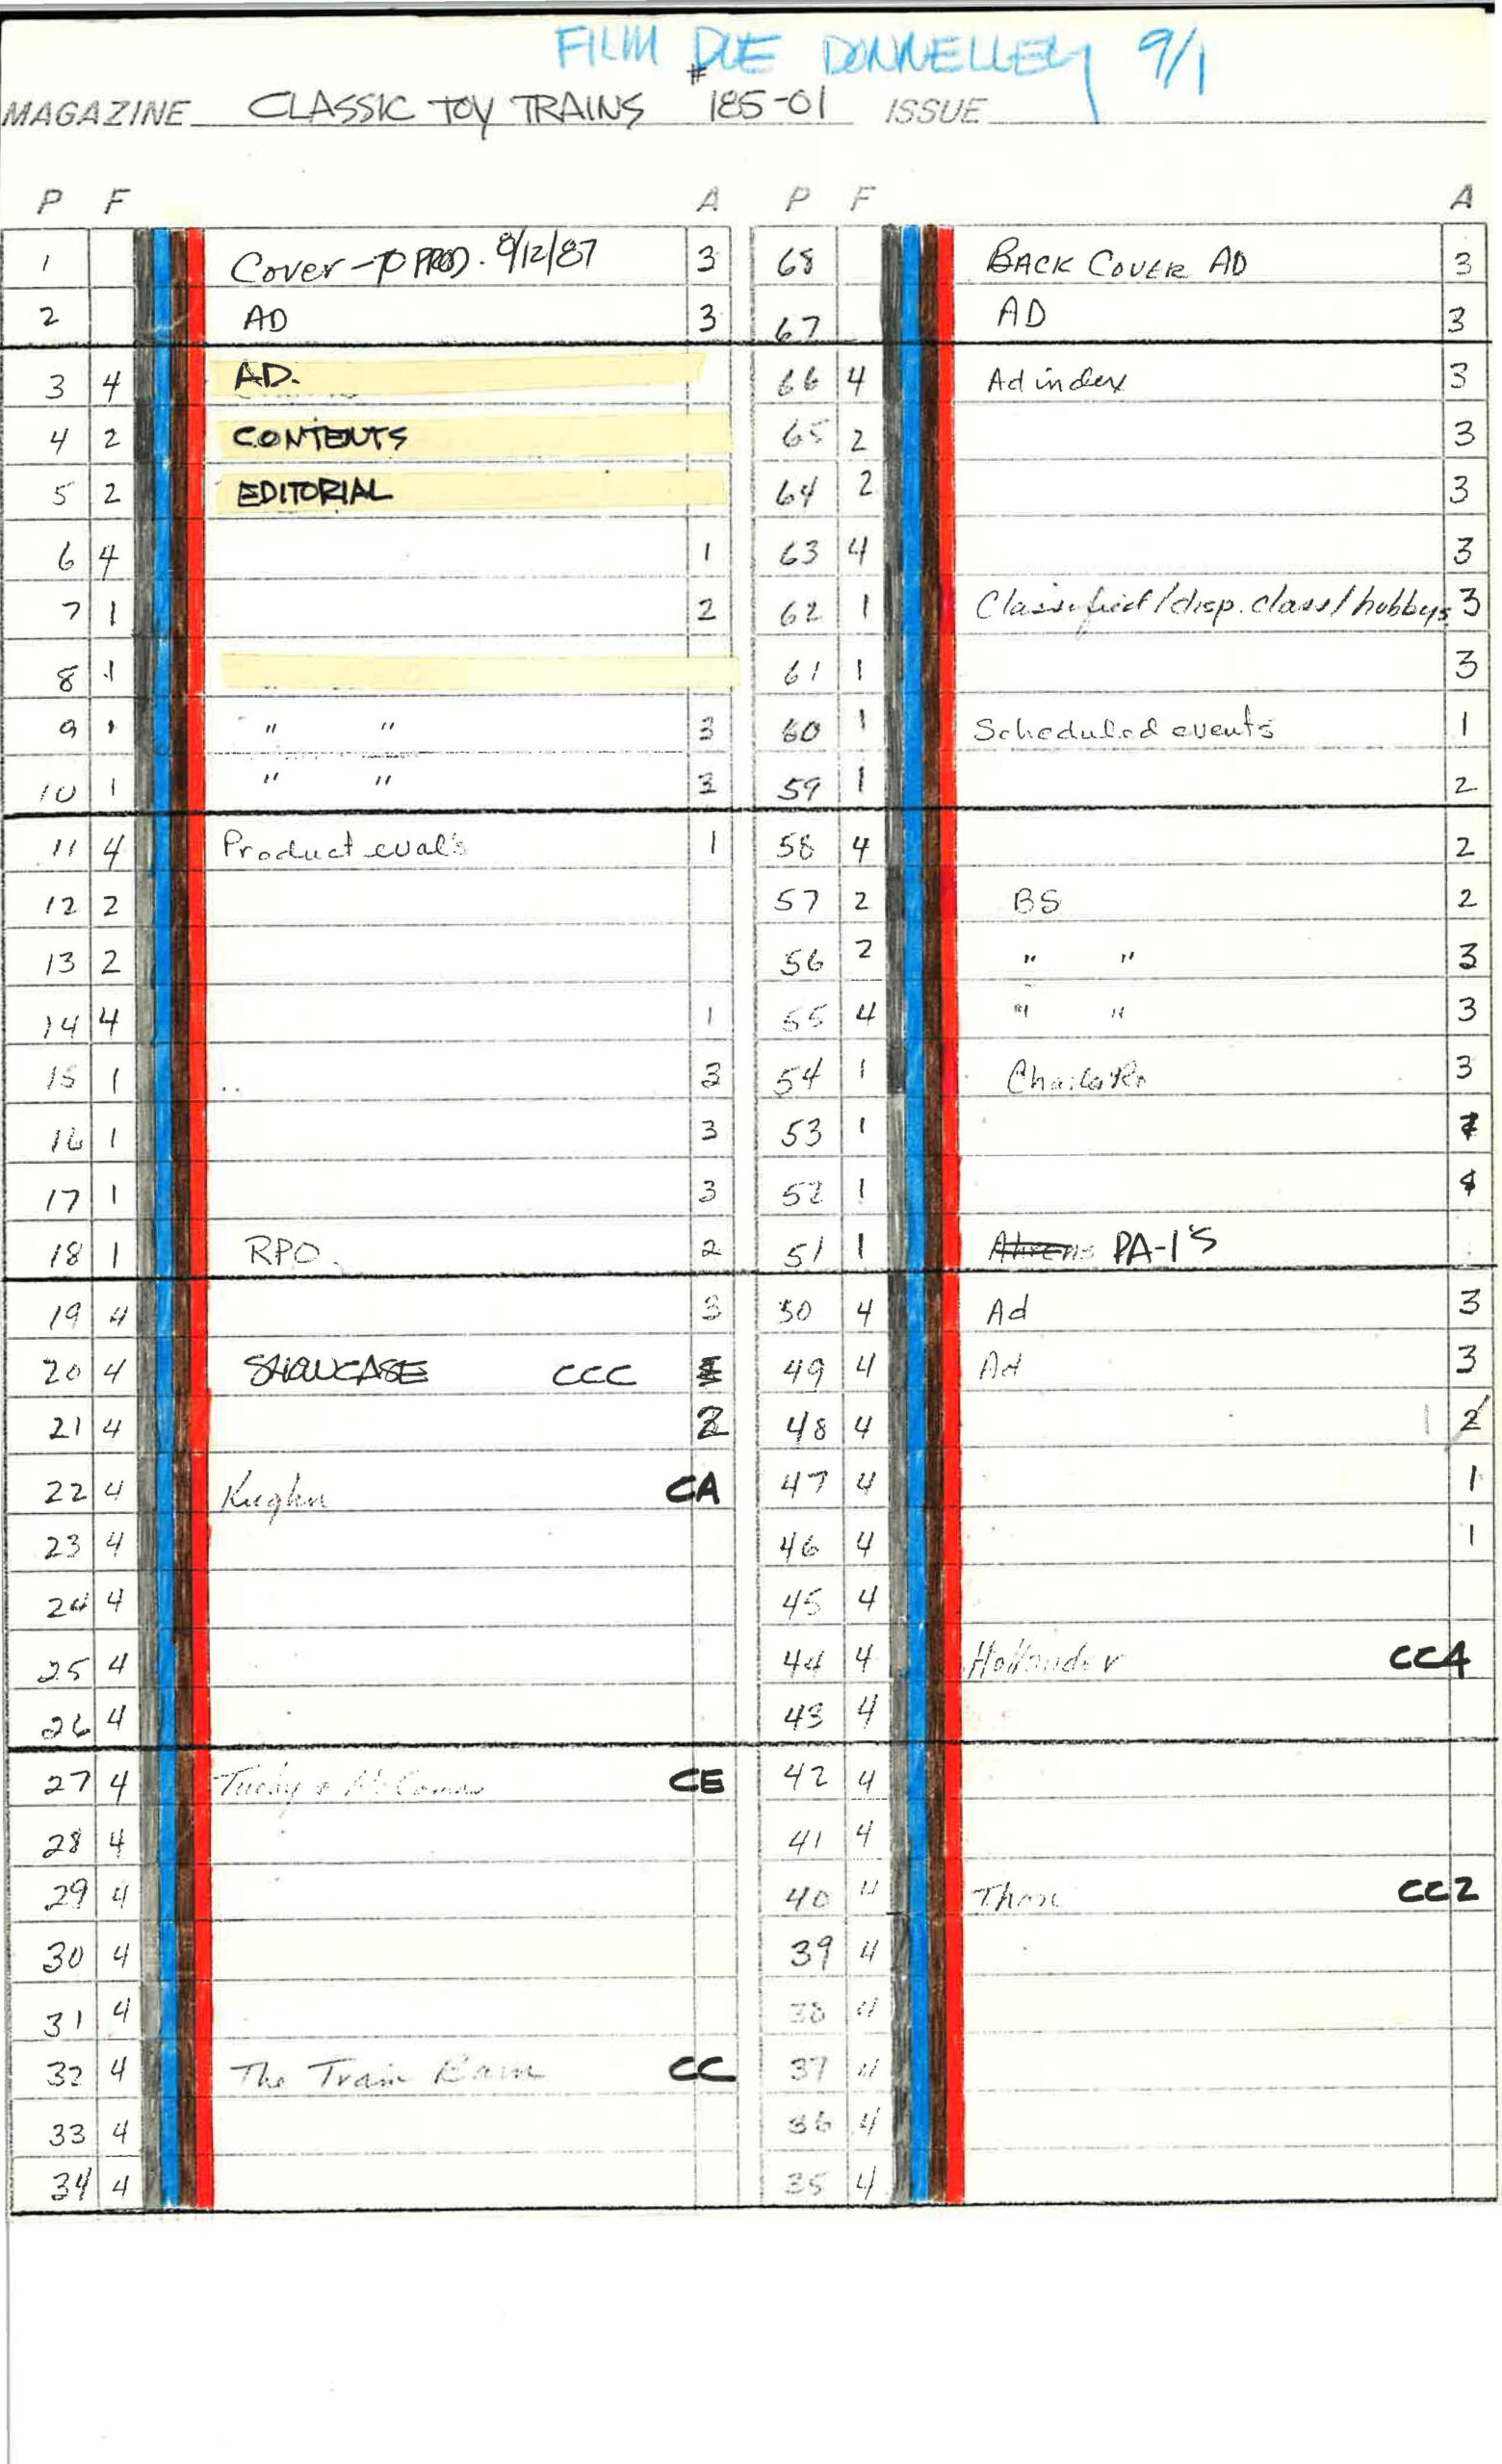 FILM DUE DONNELLEY 9/1
MAGAZINE CLASSIC TOY TRAINS #185-01 ISSUE
P F A P F A
1 Cover - TO PROD. 8/12/87 3 68 BACK COVER AD 3
2 AD 3 67 AD 3
3 4 AD. 66 4 Ad index 3
4 2 CONTENTS 65 2 3
5 2 EDITORIAL 64 2 3
6 4 1 63 4 3
7 1 2 62 1 Classified/disp. class/hobbys 3
8 1 61 1 3
9 1 " " 3 60 1 Scheduled events 1
10 1 " " 3 59 1 2
11 4 Product eval's 1 58 4 2
12 2 57 2 BS 2
13 2 56 2 " " 3
14 4 1 55 4 " " 3
15 1 3 54 1 3
16 1 3 53 1
17 1 3 52 1
18 1 RPO. 2 51 1 Ahrens PA-1'S
19 4 3 50 4 Ad 3
20 4 SHOWCASE CCC 49 4 Ad 3
21 4 2 48 4 1 2
22 4 Kughn CA 47 4 1
23 4 46 4 1
24 4 45 4
25 4 44 4 Hollander CC4
26 4 43 4
27 4 CE 42 4
28 4 41 4
29 4 40 4 CC2
30 4 39 4
31 4 38 4
32 4 The Train Barn CC 37 4
33 4 36 4
34 4 35 4